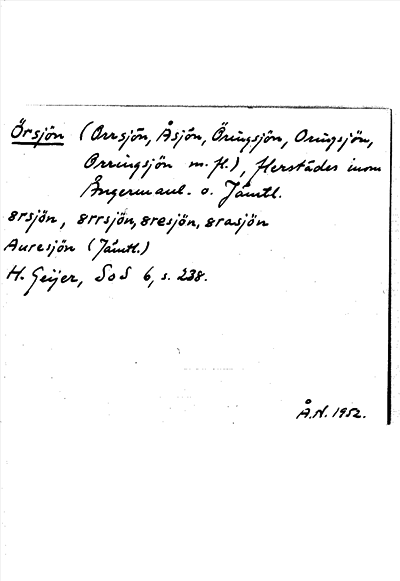 Örsjön (Orrsjön, Åsjön, Öringsjön, Oringsjön,
Orringsjön m. fl.), flerstädes inom
Ångermanl. o. Jämtl.
8rsjön, 8rrsjön, 8resjön, 8rasjön
Auresjön (Jämtl.)
H. Geijer, SoS 6, s. 238.
Å.N. 1952.